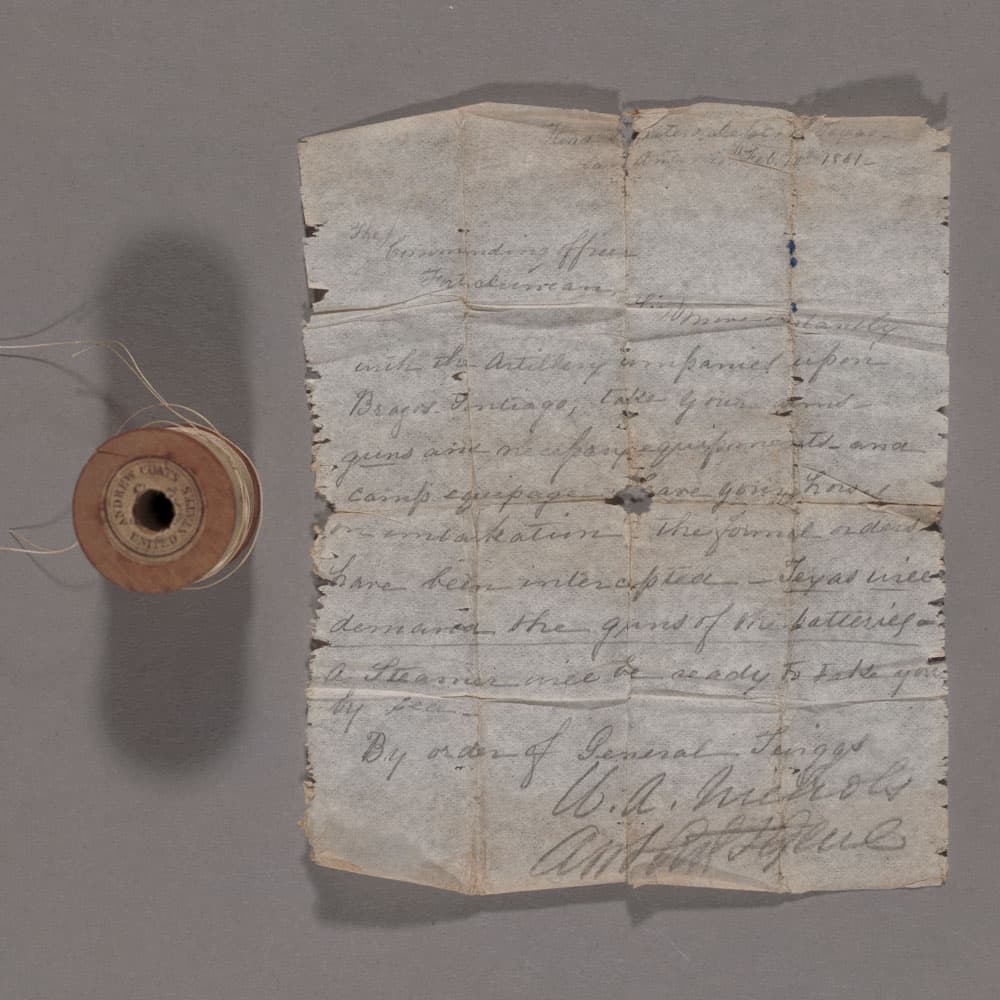 Head Quarters, Dept of Texas
San Antonio Feb 1861
The Commanding Officer
Fort duncan
Sir, move instantly
with the Artillery companies upon
Brazos Santiago, take your
guns and necessary equipments and
camp equipage leave your horses
on embarkation the formal orders
have been intercepted - Texas will
demand the guns of the batteries -
a Steamer will be ready to take you
by sea -
By order of General Twiggs
W. A. Nichols
ANDREW COATS
UNITED STATES